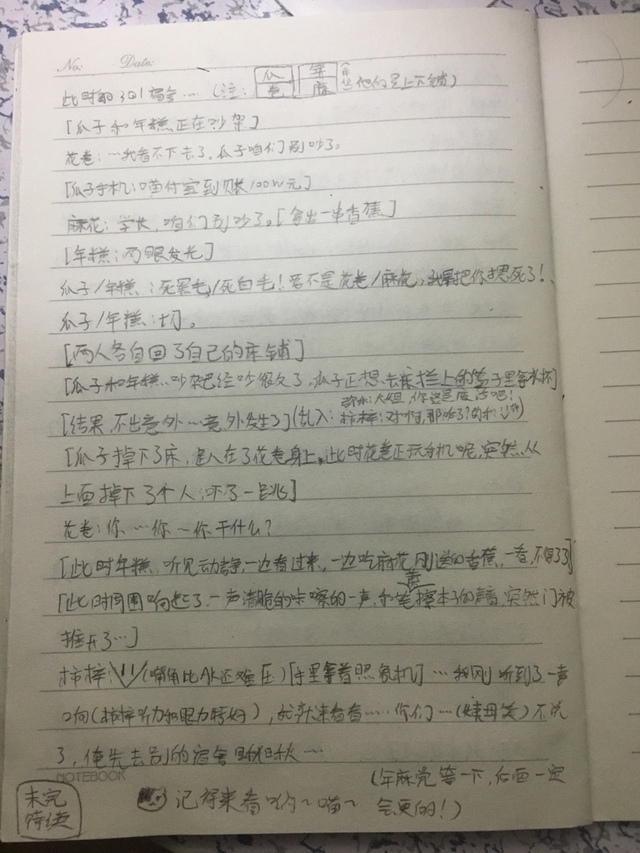 No: Date:
此时的301宿舍…（注：瓜 卷 年 麻 他们是上下铺）
[瓜子和年糕正在吵架]
花卷：…我看不下去了，瓜子咱们别吵了。
[瓜子手机：喵付宝到账100w元]
麻花：学长，咱们别吵了。[拿出一串香蕉]
[年糕：两眼发光]
瓜子/年糕：死黑毛/死白毛！要不是花卷/麻花，我早把你揍死了！
瓜子/年糕：切。
[两人各自回了自己的床铺]
[瓜子和年糕吵架已经吵很久了，瓜子正想去床栏上的篮子里拿水杯]
[结果，不出意外…意外发生了](乱入： 大姐，你这是废话吧！
柿梓：对啊，那咋了？
[瓜子掉下了床，是人在了花卷身上，此时花卷正玩手机呢，突然从
上面掉下了个人，吓了一跳]
花卷：你…你…你干什么？
[此时年糕，听见动静，一边看过来，一边吃麻花刚送的香蕉，一看，不得了了]
[此时周围响起了一声清脆的咔嚓的一声，和笔擦本子的声音，突然门被
推开了…]
柿梓：(嘴角比AK还难压)[手里拿着照象机]…我刚听到了一声
响(柿梓听力和眼力特好)，就过来看看……你们…(姨母笑)不说
了，俺先去别的宿舍 …
NOTEBOOK
(年麻党等一下，后面一定
会更的！)
未完
待续
记得来看哟～喵～